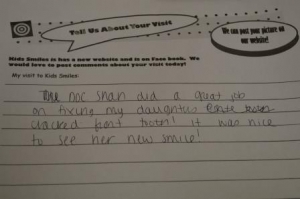 Tell Us About Your Visit
We can post your picture on
our website!
Kids Smiles is has a new website and is on Face book. We
would love to post comments about your visit today!
My visit to Kids Smiles:
The noc Shah did a great job
on fixing my daughters
cracked front tooth! it was nice
to see her new smile!